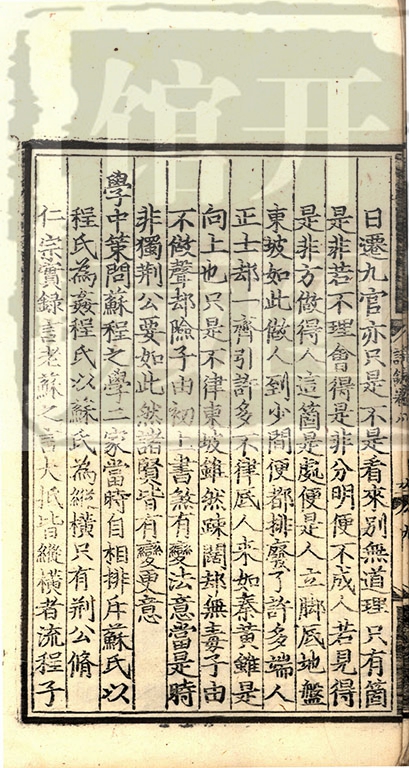 日遷九官亦只是不是看來別無道理只有箇
是非若不理會得是非分明便不成人若見得
是非方做得人這箇是處便是人立脚底地盤
東坡如此做人到少間便都排廢了許多端人
正士却一齊引許多不律底人來如秦黃雖是
向上也只是不律東坡雖然踈闊却無毒子由
不做聲却險子由初上書煞有變法意當是時
非獨荊公要如此然諸賢皆有變更意
學中策問蘇程之學二家當時自相排斥蘇氏以
程氏為姦程氏以蘇氏為縱橫只有荊公脩
仁宗實錄言老蘇之言大抵皆縱橫者流程子
开
馆